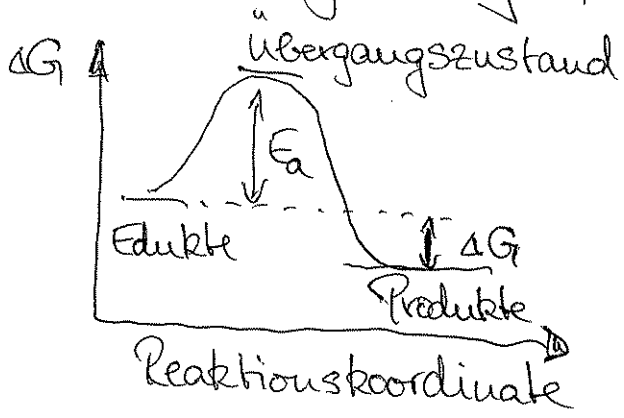 ΔG
Übergangszustand
Ea
Edukte
ΔG
Produkte
Reaktionskoordinate